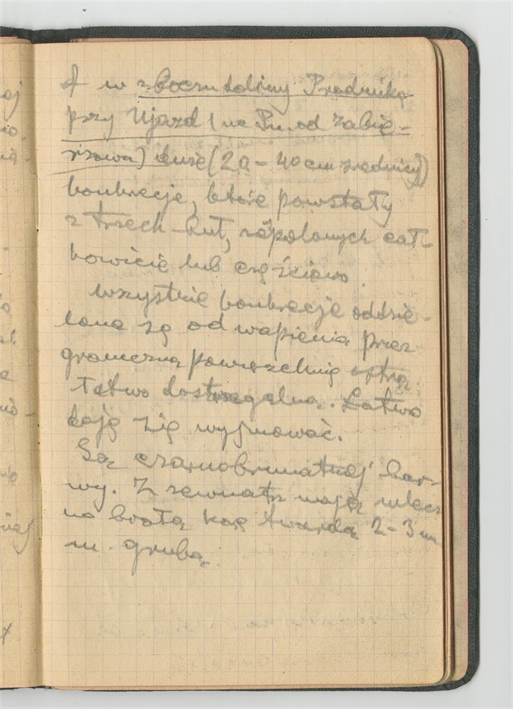 A w zboczu doliny Prądnika
przy Ujazd (na Pn. od Zabie-
rzowa) duże (20 - 40 cm średnicy)
konkrecje, które powstały
z trzech kul, zespolonych cał-
kowicie lub częściowo.
Wszystkie konkrecje oddzie-
lone są od wapienia przez
graniczną powierzchnię ostrą
łatwo dostrzegalną. Łatwo
dają się wyjmować.
Są czarnobrunatnej bar-
wy. Z zewnątrz mają mlecz
no białą korę twardą 2-3 m
m. grubą.